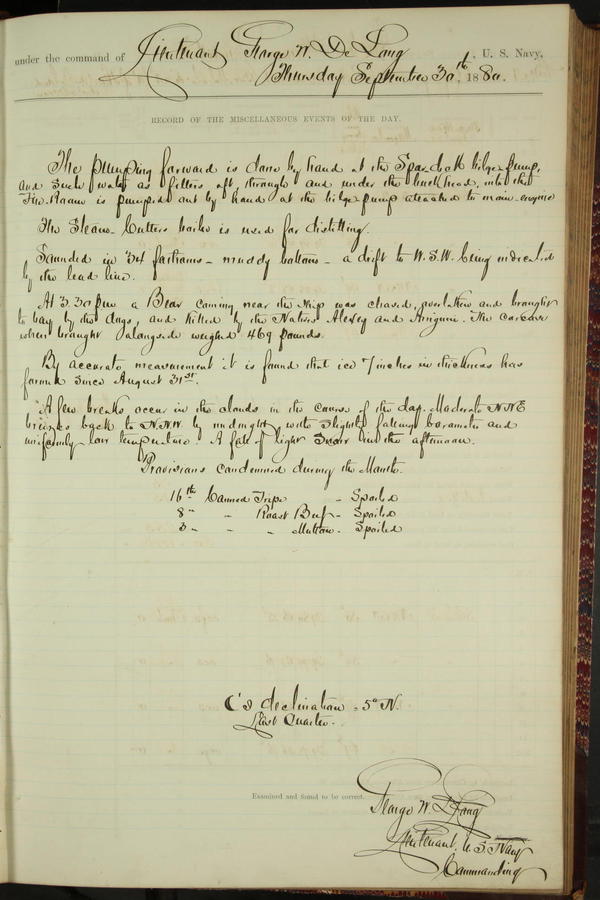 under the command of Lieutenant George W. De Long, U. S. Navy,
Thursday September 30th, 1880.
RECORD OF THE MISCELLANEOUS EVENTS OF THE DAY.
The pumping forward is done by hand at the Spar-deck bilge pump,
and such water as filters aft, through and under the bulkhead, into the
Fire-Room is pumped out by hand at the bilge pump attached to main engine
The Steam-Cutters boiler is used for distilling.
Sounded in 34 fathoms - muddy bottom - a drift to W.S.W. being indicated
by the lead line.
At 3 30 pm a Bear coming near the ship was chased, overtaken and brought
to bay by the dogs, and killed by the Natives Alexey and Aniguin. The carcase
when brought alongside weighed 469 pounds.
By accurate measurement it is found that ice 7 inches in thickness has
formed since August 31st.
A few breaks occur in the clouds in the course of the day. Moderate NNE
breezes back to NNW by midnight, with slightly falling barometer and
uniformly low temperature. A fall of light Snow in the afternoon.
Provisions condemned during the Month.
16 lb Canned Tripe - Spoiled
8 " " Roast Beef - Spoiled
3 " " Mutton - Spoiled
declination = 5° N.
Last Quarter.
Examined and found to be correct.
George W. De Long
Lieutenant, U.S. Navy
Commanding